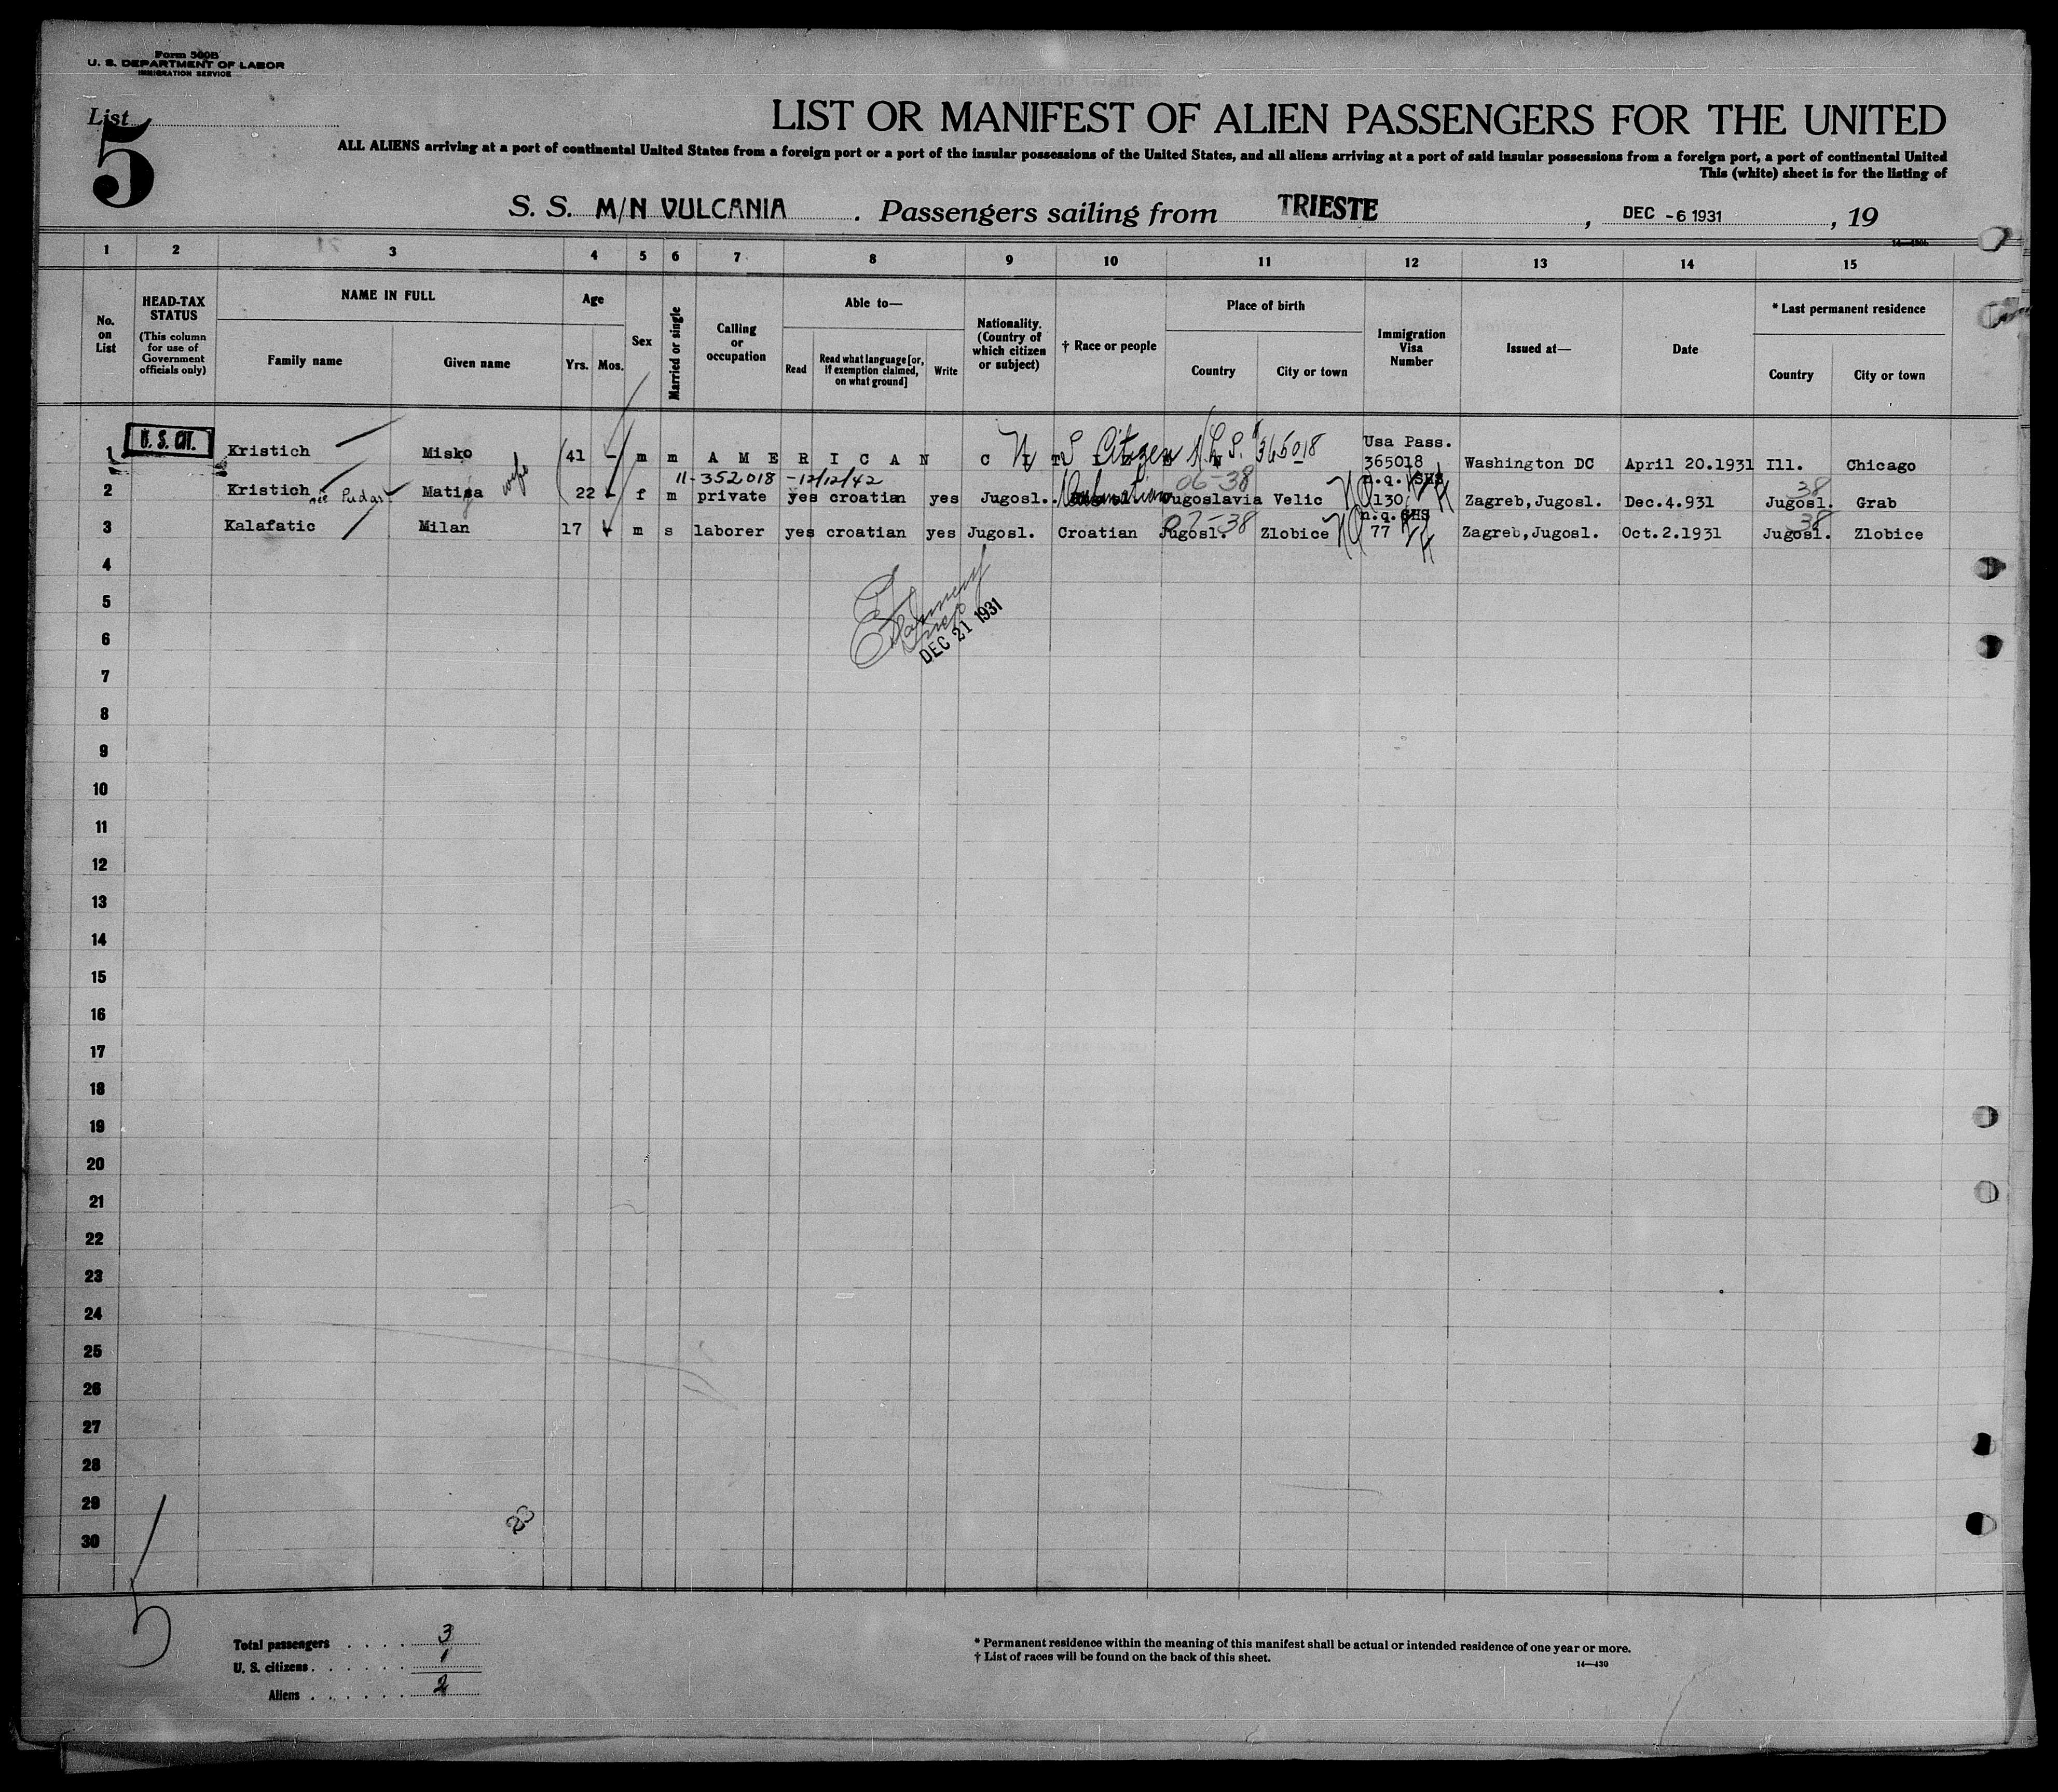 Form 500B
U. S. DEPARTMENT OF LABOR
IMMIGRATION SERVICE
List
5
LIST OR MANIFEST OF ALIEN PASSENGERS FOR THE UNITED
ALL ALIENS arriving at a port of continental United States from a foreign port or a port of the insular possessions of the United States, and all aliens arriving at a port of said insular possessions from a foreign port, a port of continental United
This (white) sheet is for the listing of
S. S. M/N VULCANIA . Passengers sailing from TRIESTE , DEC -6 1931 , 19
1 2 3 4 5 6 7 8 9 10 11 12 13 14 15
No. on List
HEAD-TAX STATUS (This column for use of Government officials only)
NAME IN FULL Family name Given name
Age Yrs. Mos.
Sex
Married or single
Calling or occupation
Able to— Read Read what language [or, if exemption claimed, on what ground] Write
Nationality. (Country of which citizen or subject)
† Race or people
Place of birth Country City or town
Immigration Visa Number
Issued at—
Date
* Last permanent residence Country City or town
1 U. S. CIT. Kristich Misko 41 - m m AMERICAN CITIZEN U S Citizen 365018 Usa Pass. 365018 Washington DC April 20.1931 Ill. Chicago
11-352018 -12/12/42 06-38
2 Kristich née Matija wife 22 - f m private yes croatian yes Jugosl. Jugoslavia Velic n.q. SHS 130 Zagreb,Jugosl. Dec.4.931 38 Jugosl. Grab
3 Kalafatic Milan 17 m s laborer yes croatian yes Jugosl. Croatian Jugosl. 07-38 Zlobice n.q. SHS 77 Zagreb,Jugosl. Oct.2.1931 38 Jugosl. Zlobice
4
5
6
DEC 21 1931
7
8
9
10
11
12
13
14
15
16
17
18
19
20
21
22
23
24
25
26
27
28
29
30
5
Total passengers . . . . 3
U. S. citizens . . . . . . 1
Aliens . . . . . . 2
* Permanent residence within the meaning of this manifest shall be actual or intended residence of one year or more.
† List of races will be found on the back of this sheet.
14—430